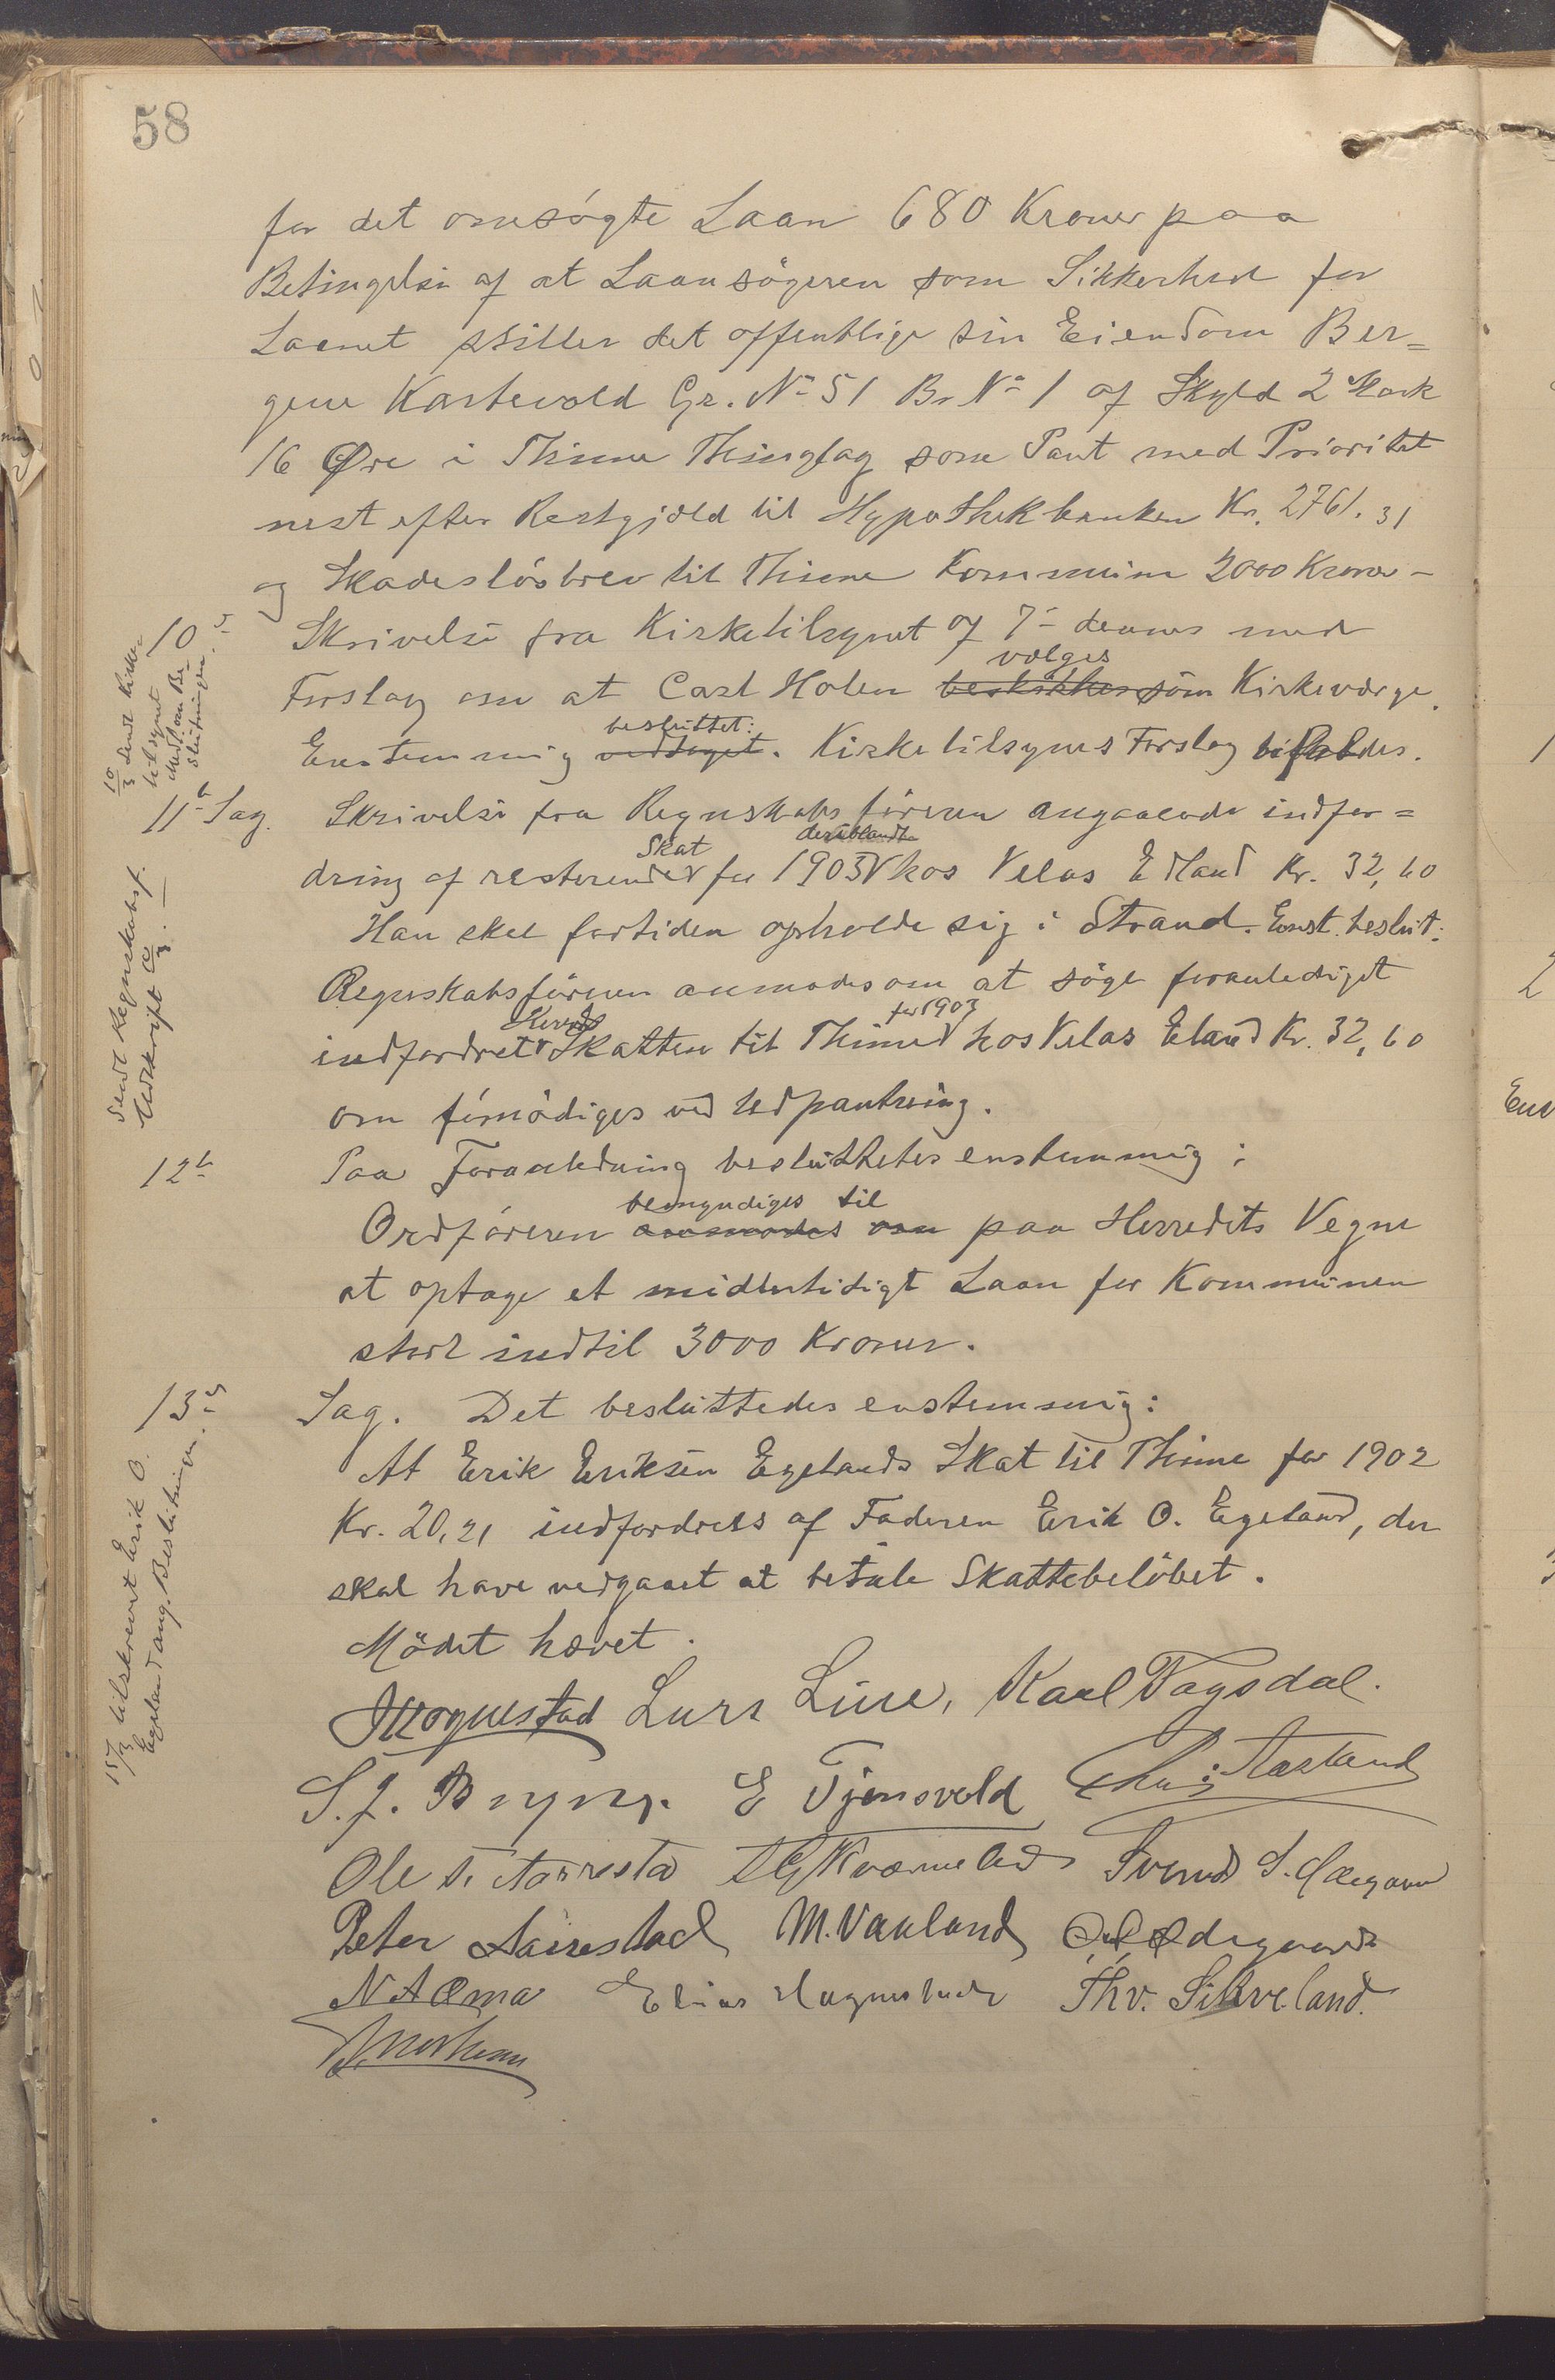 58
for det omsøgte Laan 680 Kroner paa
Betingelse af at Laansøgeren som Sikkerhed for
Laanet stiller det offentlige sin Eiendom Ber=
gene Kartevold Gr. No 51 Br. No 1 af Skyld 2 Mark
16 Øre i Thime Thinglag som Pant med Prioritet
nest efter Restgjæld til Hypothekbanken Kr. 2761.31
og Skadesløsbrev til Thime Kommune 2000 Kroner -
10 Skrivelse fra Kirketilsynet af 7- dennes med
vælges
Forslag om at Carl Holen beskikkes som Kirkeværge.
besluttet:
Enstemmig vedtaget. Kirketilsynets Forslag bifaldes.
10/3 sendt Kirke
tilsynet
Medd. om Be-
slutningen.
11te Sag. Skrivelse fra Regnskabsføreren angaaende indfor=
Skat deriblandt
dring af resterende for 1903 hos Velas Edland Kr. 32,60
Han skal fortiden opholde sig i Strand. Enst. beslut.:
Regnskabsføreren anmodes om at søge foranlediget
Herreds for 1903
indfordret Skatten til Thime hos Velas Eland Kr. 32,60
om fornødiges ved Udpantning.
Sendt Regnskabsf.
Udskrift 10/3. -
12te Paa Foranledning besluttedes enstemmig:
bemyndiges til
Ordføreren anmodes om paa Herredets Vegne
at optage et midlertidigt Laan for Kommunen
stort indtil 3000 Kroner.
13de Sag. Det besluttedes enstemmig:
At Erik Eriksen Egelands Skat til Thime for 1902
Kr. 20,21 indfordres af Faderen Erik O. Egeland, der
skal have vedgaaet at betale Skattebeløbet.
15/3 tilskrevet Erik O.
Egeland ang. Beslutningen.
Mødet hævet.
Lars Lise, Karl Fagsdal.
E Tjensvold
Ole T. Aarrestad Svend S.
Peter Aarrestad M. Vauland Ødegaard
Elias Haugnestad Thv. Sikveland.